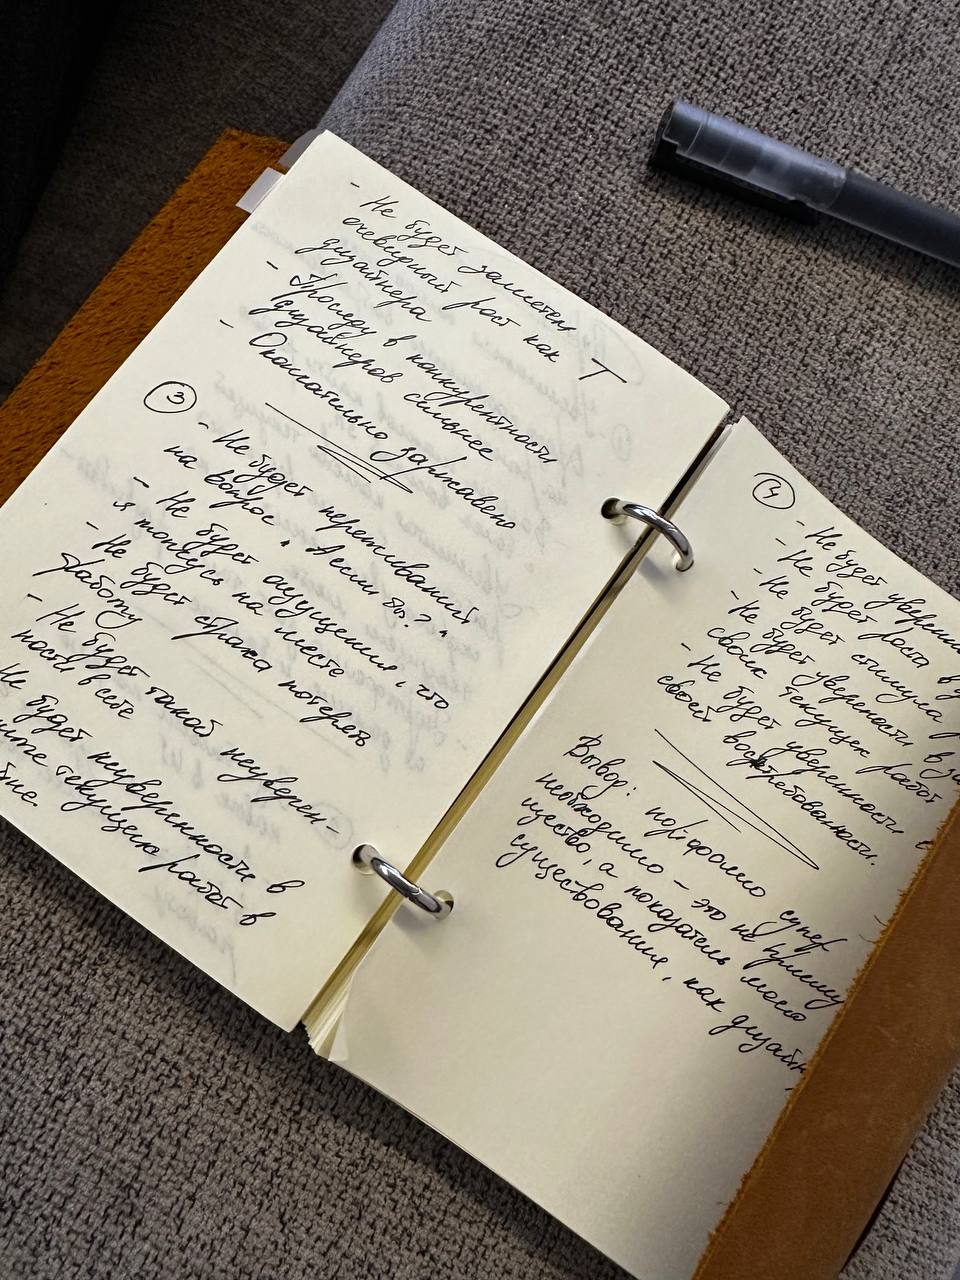 - Не будет заметен
очевидный рост как
дизайнера
- Просяду в конкурентности
дизайнеров сильнее
- Окончательно заржавею
3
- Не будет переживаний
на вопрос "А если бы?"
- Не будет ощущения, что
я топчусь на месте
- Не будет страха потерять
работу
- Не будет такой неуверен-
ности в себе
Не будет неуверенности в
текущих работ в
4
- Не будет уверенно
- Не будет роста
- Не будет стимула
- Не будет уверенности в
своих текущих работ
- Не будет уверенности в
своей востребованости.
Вывод: портфолио супер
необходимо - это не преиму
щество, а показатель моего
существования, как дизайн